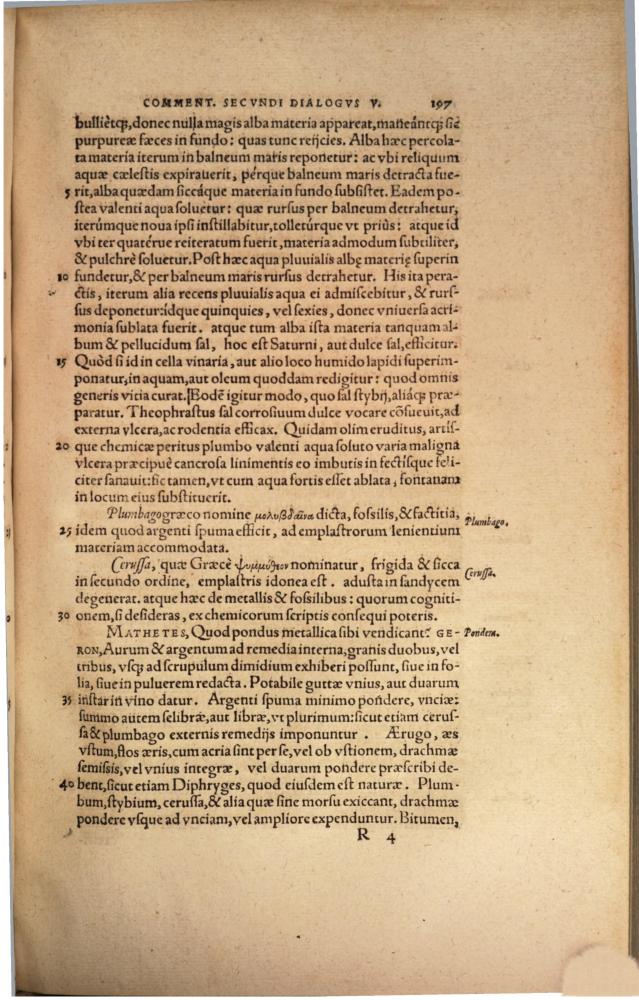 COMMENT. SECVNDI DIALOGVS V. 197
bulliètq́;, donec nulla magis alba materia appareat, maneántq́; sic
purpureæ fæces in fundo: quas tunc reijcies. Alba hæc percola-
ta materia iterum in balneum maris reponetur: ac vbi reliquum
aquæ cælestis expirauerit, pérque balneum maris detracta fue-
5 rit, alba quædam siccáque materia in fundo subsistet. Eadem po-
stea valenti aqua soluetur: quæ rursus per balneum detrahetur,
iterúmque noua ipsi instillabitur, tolletúrque vt priùs: atque id
vbi ter quatérue reiteratum fuerit, materia admodum subtiliter,
& pulchrè soluetur. Post hæc aqua pluuialis albę materię superin
10 fundetur, & per balneum maris rursus detrahetur. His ita pera-
ctis, iterum alia recens pluuialis aqua ei admiscebitur, & rurs-
sus deponetur: idque quinquies, vel sexies, donec vniuersa acri-
monia sublata fuerit. atque tum alba ista materia tanquam al-
bum & pellucidum sal, hoc est Saturni, aut dulce sal, efficitur.
15 Quòd si id in cella vinaria, aut alio loco humido lapidi superim-
ponatur, in aquam, aut oleum quoddam redigitur: quod omnis
generis vitia curat. Eodē igitur modo, quo sal stybij, aliáq́; præ-
paratur. Theophrastus sal corrosiuum dulce vocare cōsueuit, ad
externa vlcera, ac rodentia efficax. Quidam olim eruditus, artís-
20 que chemicæ peritus plumbo valenti aqua soluto varia maligna
vlcera præcipuè cancrosa linimentis eo imbutis infectísque feli-
citer sanauit: sic tamen, vt cum aqua fortis esset ablata, fontanam
in locum eius substituerit.
Plumbago græco nomine μολύβδαινα dicta, fossilis, & factitia,
Plumbago.
25 idem quod argenti spuma efficit, ad emplastrorum lenientium
materiam accommodata.
Cerussa, quæ Græcè ψιμμύθιον nominatur, frigida & sicca
Cerussa.
in secundo ordine, emplastris idonea est. adusta in sandycem
degenerat. atque hæc de metallis & fossilibus: quorum cogniti-
30 onem, si desideras, ex chemicorum scriptis consequi poteris.
MATHETES, Quod pondus metallica sibi vendicant? GE-
Pondera.
RON, Aurum & argentum ad remedia interna, granis duobus, vel
tribus, vsq́; ad scrupulum dimidium exhiberi possunt, siue in fo-
lia, siue in puluerem redacta. Potabile guttæ vnius, aut duarum
35 instar in vino datur. Argenti spuma minimo pondere, vnciæ:
summo autem selibræ, aut libræ, vt plurimum: sicut etiam cerus-
sa & plumbago externis remedijs imponuntur. Ærugo, æs
vstum, flos æris, cum acria sint per se, vel ob vstionem, drachmæ
semissis, vel vnius integræ, vel duarum pondere præscribi de-
40 bent, sicut etiam Diphryges, quod eiusdem est naturæ. Plum-
bum, stybium, cerussa, & alia quæ sine morsu exiccant, drachmæ
pondere vsque ad vnciam, vel ampliore expenduntur. Bitumen,
R 4